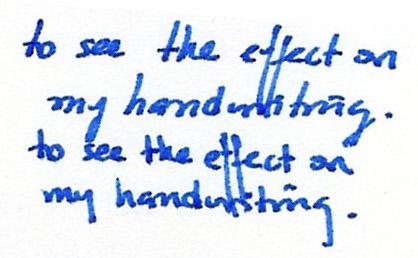 to see the effect on
my handwriting.
to see the effect on
my handwriting.